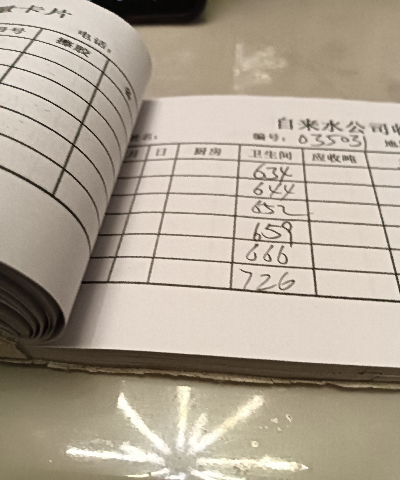 卡片
号 电话：
搪胶
自来水公司收
编号：03503
月 日 厨房 卫生间 应收吨
634
644
652
659
666
726